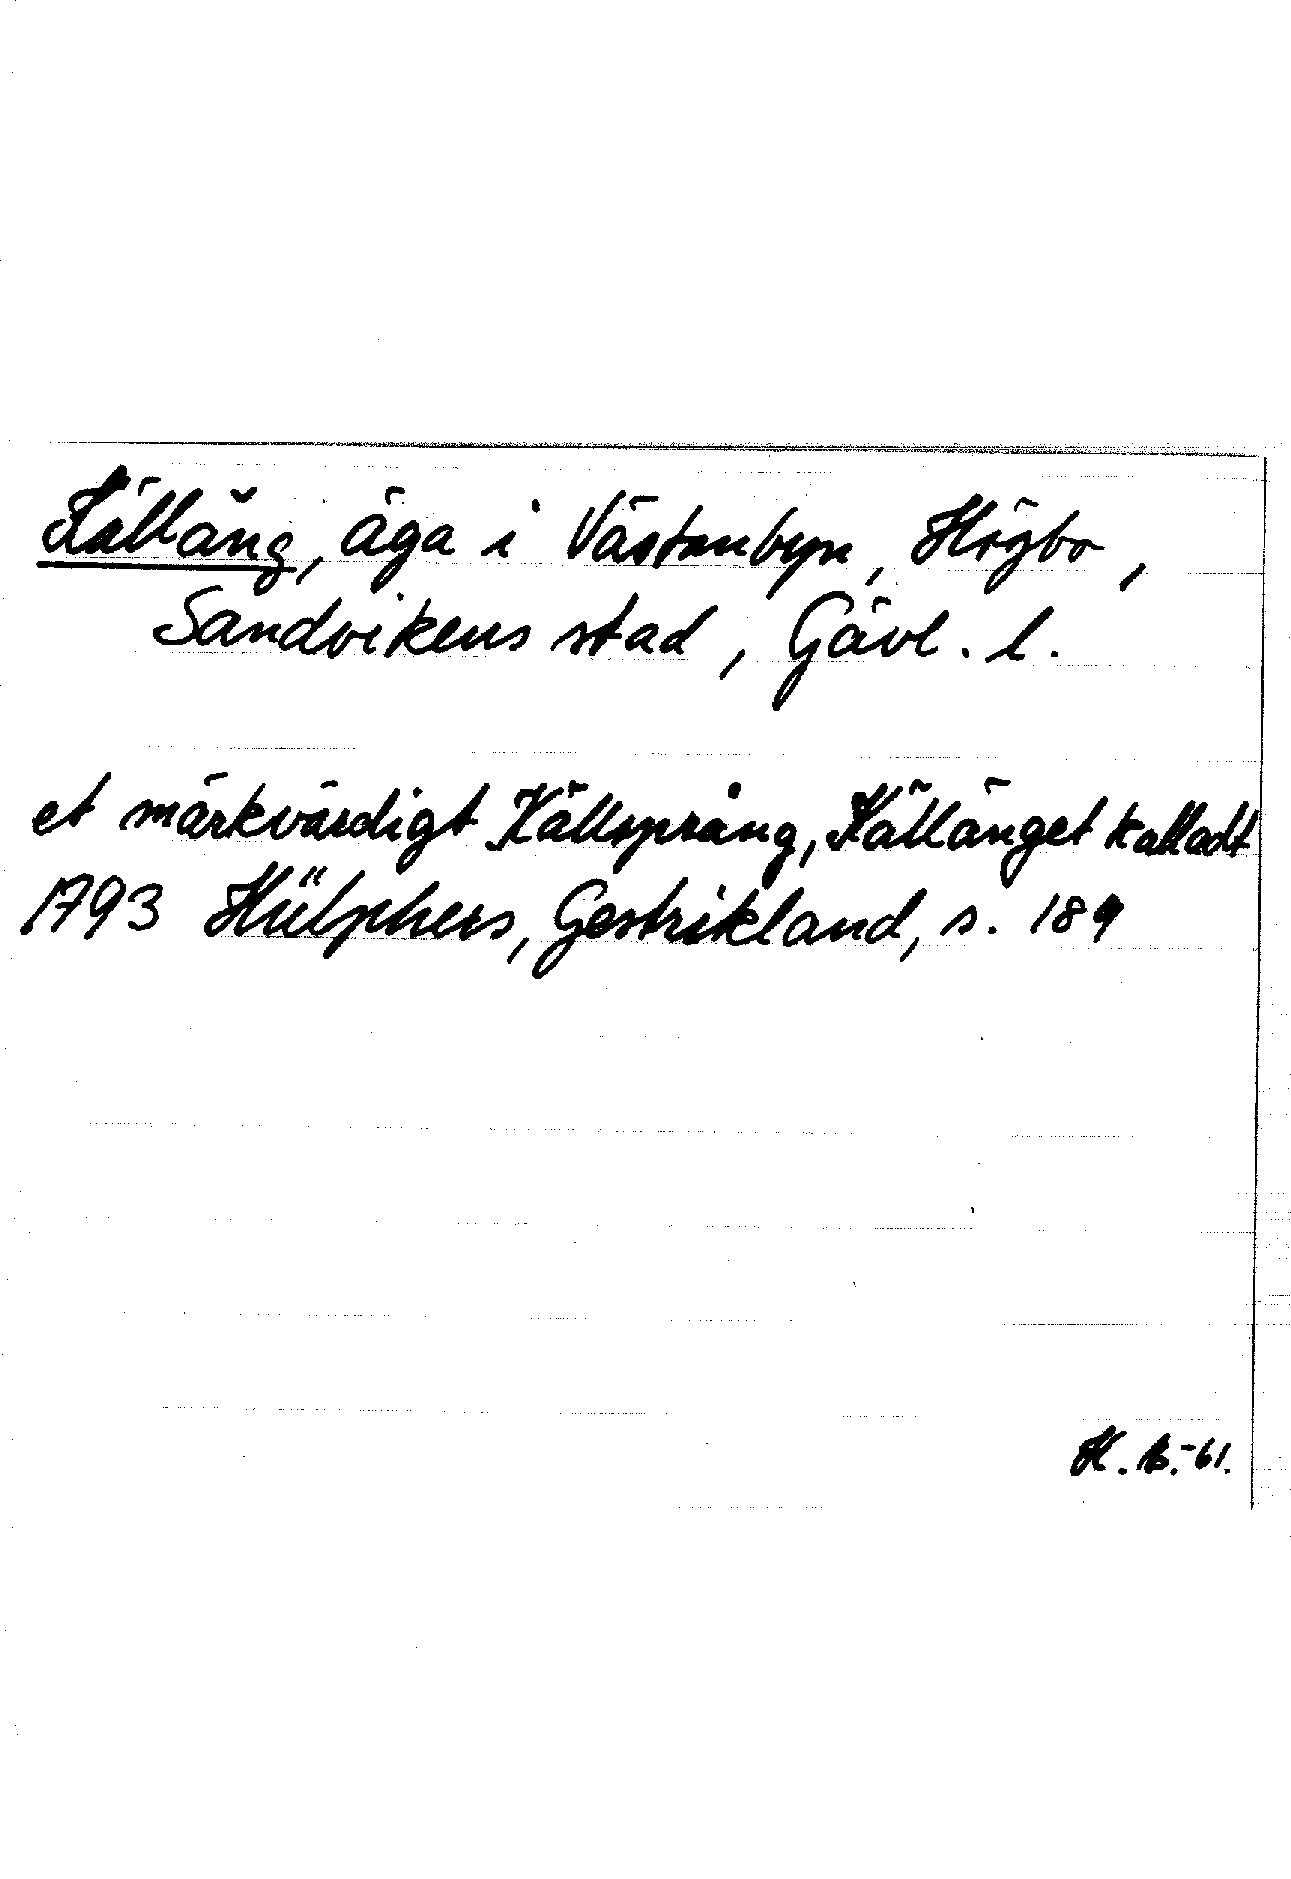 Källäng, äga i Västanbyn, Högbo,
Sandvikens stad, Gävl. l.
et märkvärdigt Källsprång, Källänget kalladt
1793 Hülphers, Gestrikland, s. 189
H. B. -61.